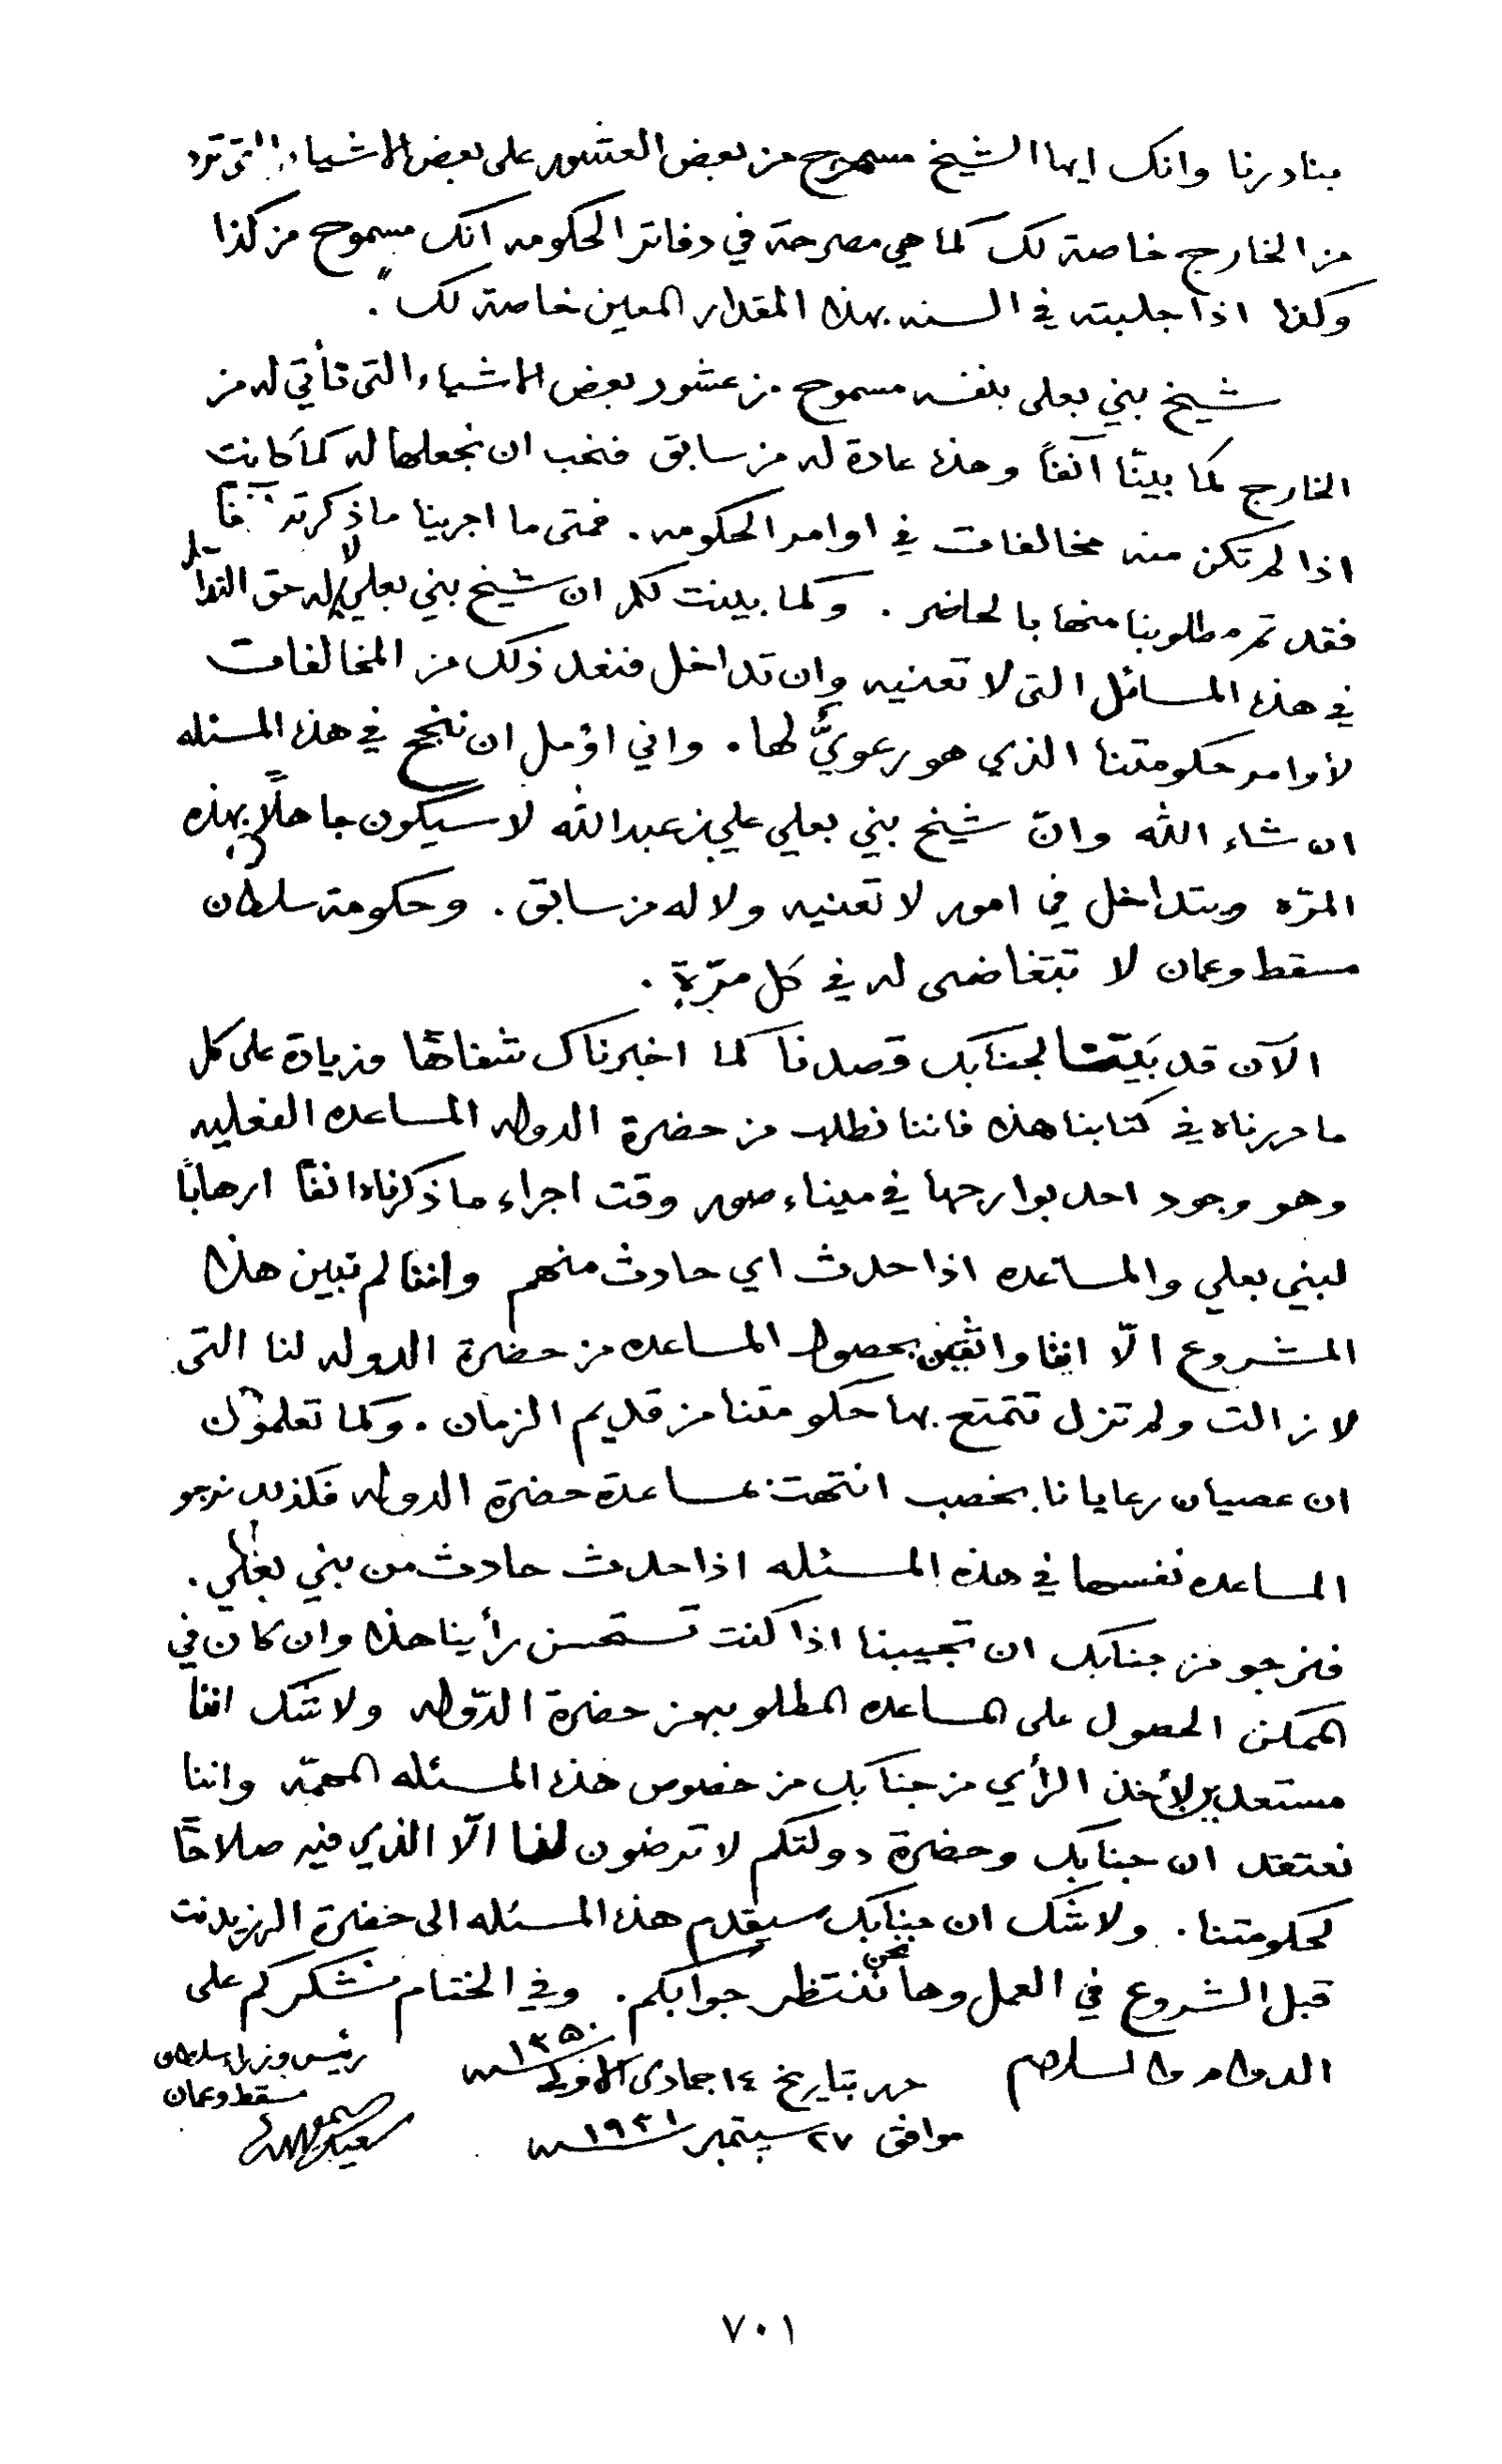 بنادرنا وانك ايها الشيخ مسموح من بعض العشور على بعض الاشياء التي ترد
من الخارج خاصة لك كما هي مصرحة في دفاتر الحكومه انك مسموح من كذا
وكذا اذا جلبته في السنه بهذا المقدار المعين خاصة لك".
شيخ بني بعلي بنفسه مسموح من عشور بعض الاشياء التي تأتي له من
الخارج كما بينّا آنفاً وهذه عادة له من سابق فنحب ان نجعلها له كما كانت
اذا لم تكن منه مخالفات في اوامر الحكومه. فمتى ما اجرينا ما ذكرته آنفاً
فقد تم مطلوبنا منها بالحاضر. وكما بينت لكم ان شيخ بني بعلي لا له حق التداخل
في هذه المسائل التي لا تعنيه وإن تداخل فنعد ذلك من المخالفات
لأوامر حكومتنا الذي هو رعويٌّ لها. واني اؤمل ان ننجح في هذه المسئله
ان شاء الله وانّ شيخ بني بعلي علي بن عبدالله لا سيكون جاهلاً بهذه
المرّه ويتداخل في امور لا تعنيه ولا له من سابق. وحكومة سلطان
مسقط وعمان لا تتغاضى له في كل مرّةٍ.
الآن قد بَيّنّا لجنابك قصدنا كما اخبرناك شفاهًا وزيادة على كل
ما حررناه في كتابنا هذه فاننا نطلب من حضرة الدوله المساعده الفعليه
وهو وجود احد بوارجها في ميناء صور وقت اجراء ما ذكرناه انفاً ارهابًا
لبني بعلي والمساعده اذا حدث اي حادث منهم واننا لم نبين هذا
المشروع الّا اننا واثقين بحصول المساعده من حضرة الدوله لنا التى
لا زالت ولم تزل تتمتع بها حكومتنا من قديم الزمان. وكما تعلمون
ان عصيان رعايانا بخصب انتهت بمساعدة حضرة الدوله فلذلك نرجو
المساعده نفسها في هذه المسئله اذا حدث حادث من بني بعلي.
فنرجو من جنابك ان تجيبنا اذا كنت تستحسن رأينا هذا وان كان في
الممكن الحصول على المساعده المطلوبه من حضرة الدّوله ولا شك اننا
مستعدين لأخذ الرأي من جنابك من خصوص هذه المسئله المهمّه واننا
نعتقد ان جنابك وحضرة دولتكم لا ترضون لنا الّا الذي فيه صلاحًا
لحكومتنا. ولا شك ان جنابك سيقدم هذه المسئله الى حضرة الرزيدنت
قبل الشروع في العمل وها نحن ننتظر جوابكم. وفي الختام نشكركم على
الدوام والسلام
حرر بتاريخ ١٤ جمادى الاولى سنة ١٣٥٠
موافق ٢٧ سبتمبر سنة ١٩٣١
رئيس وزراء سلطان
مسقط وعمان
٧٠١